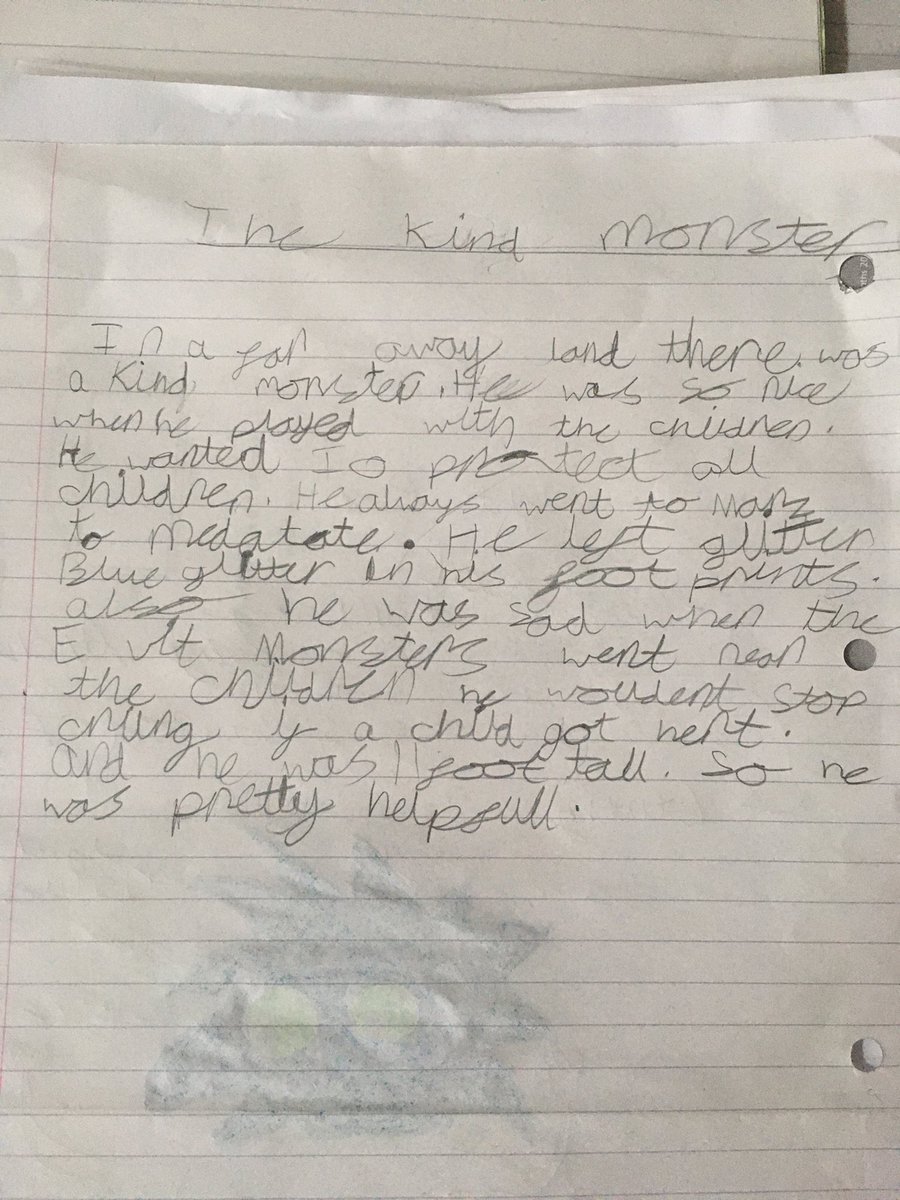 The Kind Monster
In a far away land there was
a Kind monster. He was so nice
when he played with the children.
He wanted To protect all
children. He always went to Marz
to medatate. He left glitter
Blue glitter in his foot prints.
also he was sad when the
Evil Monsters went near
the children he woudent stop
criing if a child got hert.
and he was 11 foot tall. So he
was pretty helpfull.